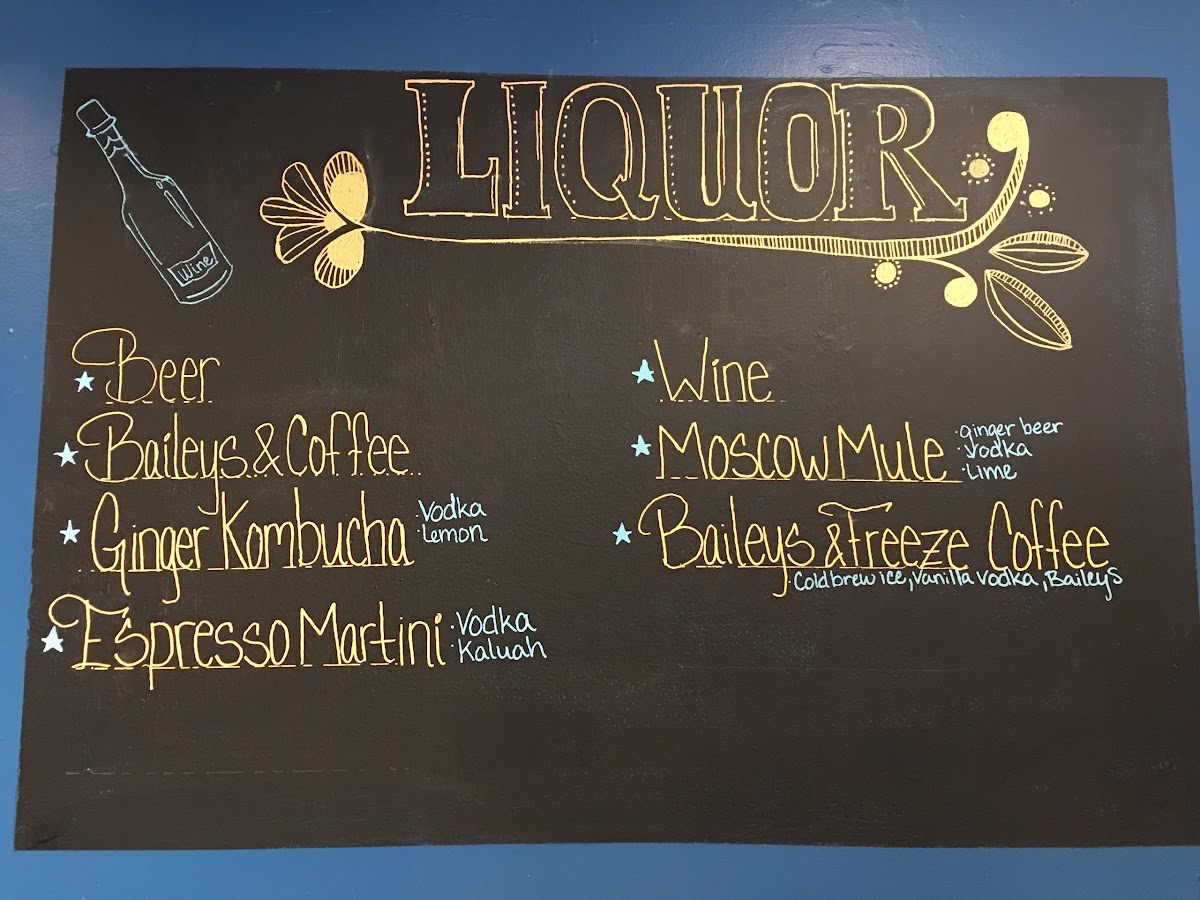 LIQUOR
Wine
Beer
Baileys & Coffee
Ginger Kombucha
·Vodka
·Lemon
Espresso Martini
·Vodka
·Kaluah
Wine
Moscow Mule
·ginger beer
·Vodka
·Lime
Baileys & Freeze Coffee
·Cold brew ice, Vanilla Vodka, Baileys